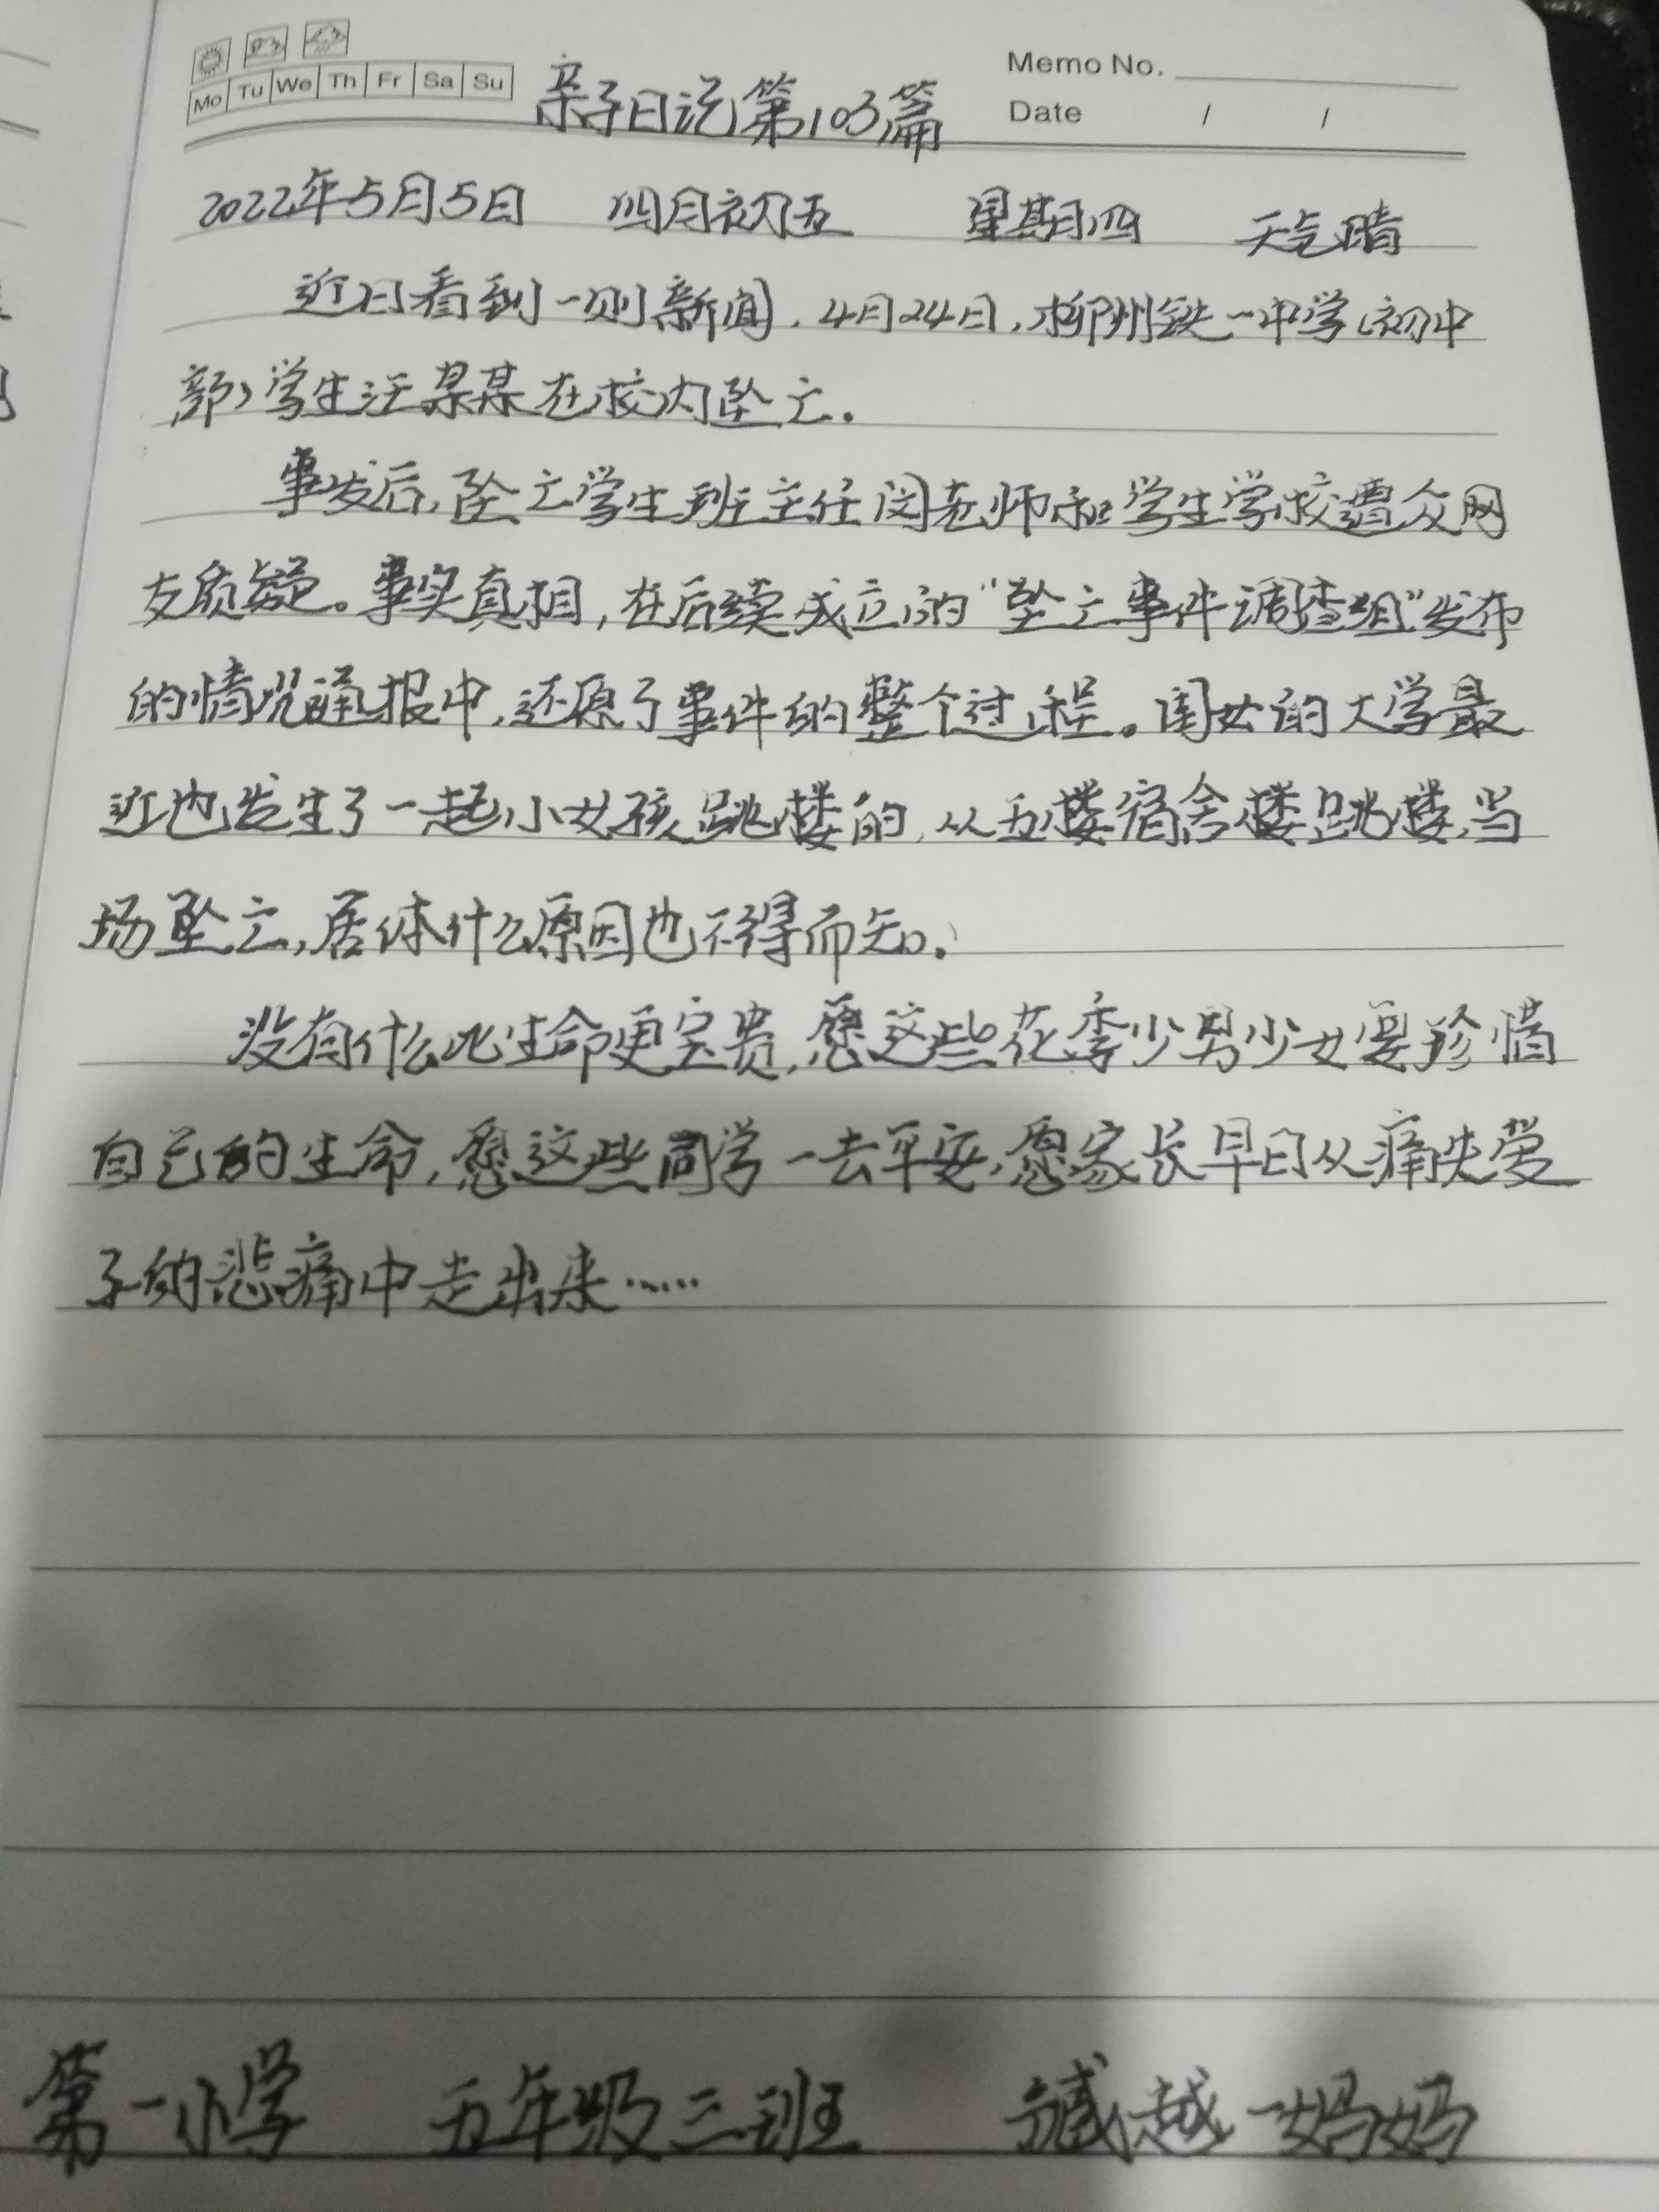 Mo Tu We Th Fr Sa Su
Memo No.
Date / /
亲子日记第103篇
2022年5月5日 四月初五 星期四 天气晴
近日看到一则新闻,4月24日,柳州铁一中学(初中
部)学生汪某某在校内坠亡。
事发后,坠亡学生班主任闵老师和学生学校遭众网
友质疑。事实真相,在后续成立的“坠亡事件调查组”发布
的情况通报中,还原了事件的整个过程。闺女的大学最
近也发生了一起小女孩跳楼的,从五楼宿舍楼跳楼,当
场坠亡,居体什么原因也不得而知。
没有什么比生命更宝贵,愿这些花季少男少女要珍惜
自己的生命,愿这些同学一去平安,愿家长早日从痛失爱
子的悲痛中走出来……
第一小学 五年级三班 臧越一妈妈